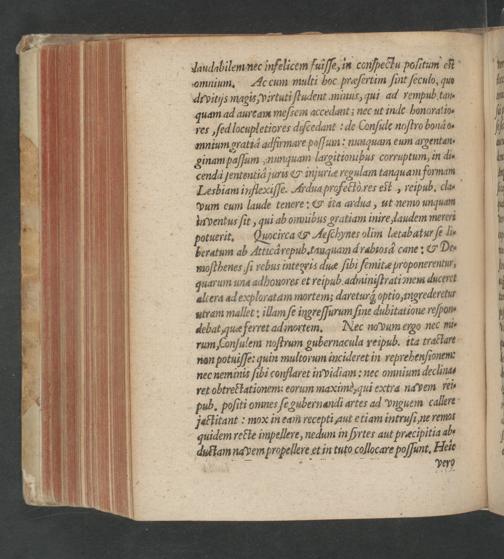 laudabilem nec infelicem fuisse, in conspectu positum est
omnium. Ac cum multi hoc præsertim sint seculo, quo
divitijs magis, virtuti student minus, qui ad rempub. tan-
quam ad auream messem accedant; nec ut inde honoratio-
res, sed locupletiores discedant: de Consule nostro bonâ o-
mnium gratiâ adfirmare possum: nunquam eum argentan-
ginam passum, nunquam largitionibus corruptum, in di-
cendâ sententiâ juris & injuriæ regulam tanquam formam
Lesbiam inflexisse. Ardua profectò res est, reipub. cla-
vum cum laude tenere: & ita ardua, ut nemo unquam
inventus sit, qui ab omnibus gratiam inire, laudem mereri
potuerit. Quocirca & Aeschynes olim lætabatur se li-
beratum ab Atticâ repub. tanquam à rabiosâ cane: & De-
mosthenes, si rebus integris duæ sibi semitæ proponerentur,
quarum una ad honores et reipub. administrationem duceret
altera ad exploratam mortem; dareturq́; optio, ingrederetur
utram mallet: illam se ingressurum sine dubitatione respon-
debat, quæ ferret ad mortem. Nec novum ergo nec mi-
rum, Consulem nostrum gubernacula reipub. ita tractare
non potuisse: quin multorum incideret in reprehensionem:
nec neminis sibi conflaret invidiam: nec omnium declina-
ret obtrectationem: eorum maximè, qui extra navem rei-
pub. positi omnes se gubernandi artes ad vnguem callere
jactitant: mox in eam recepti, aut etiam intrusi, ne remos
quidem recte impellere, nedum in syrtes aut præcipitia ab-
ductam navem propellere et in tuto collocare possunt. Heic
vero